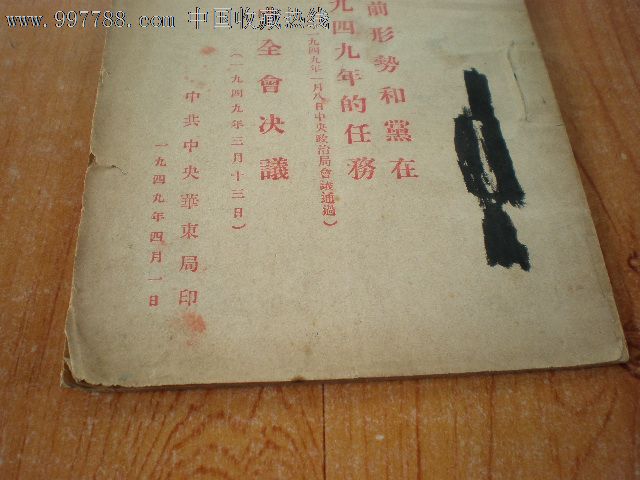 www.997788.com 中国收藏热线
前形勢和黨在
九四九年的任務
九四九年一月八日中央政治局會議通過）
全會决議
（一九四九年三月十三日）
中共中央華東局印
一九四九年四月一日